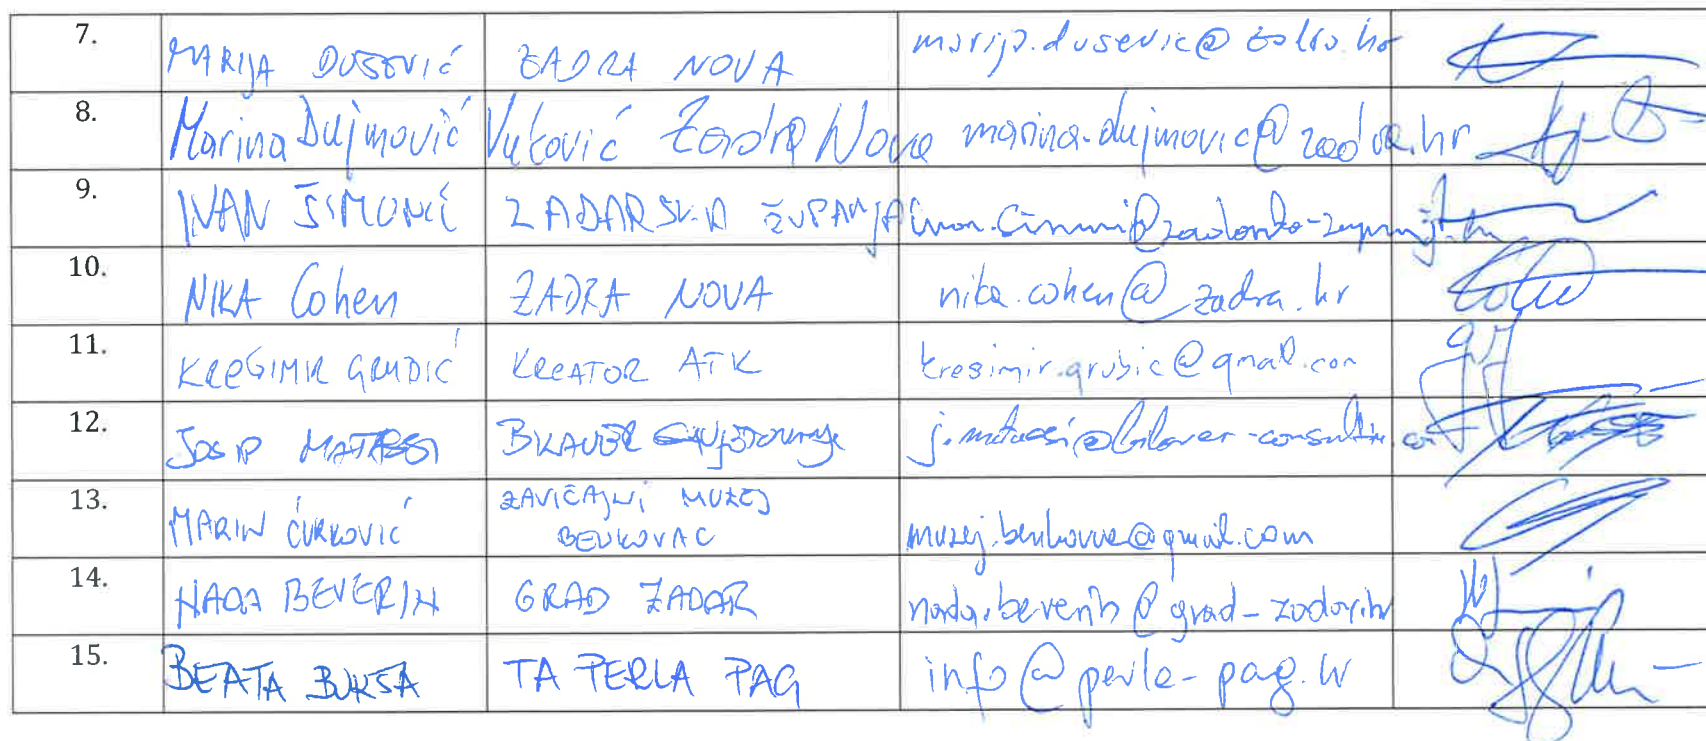 7. MARIJA DUŠEVIĆ ZADRA NOVA marija.dusevic@zadra.hr
8. Marina Dujmović Vuković Zadra Nova marina.dujmovic@zadra.hr
9. IVAN ŠIMUNIĆ ZADARSKA ŽUPANIJA
10. NIKA Cohen ZADRA NOVA nika.cohen@zadra.hr
11. KREŠIMIR GRUBIĆ KREATOR ATK kresimir.grubic@gmail.com
12. JOSIP
13. MARIN ĆURKOVIĆ ZAVIČAJNI MUZEJ
BENKOVAC muzej.benkovac@gmail.com
14. NADA BEVERIN GRAD ZADAR nada.beverin@grad-zadar.hr
15. BEATA BUKŠA TA PERLA PAG info@perla-pag.hr